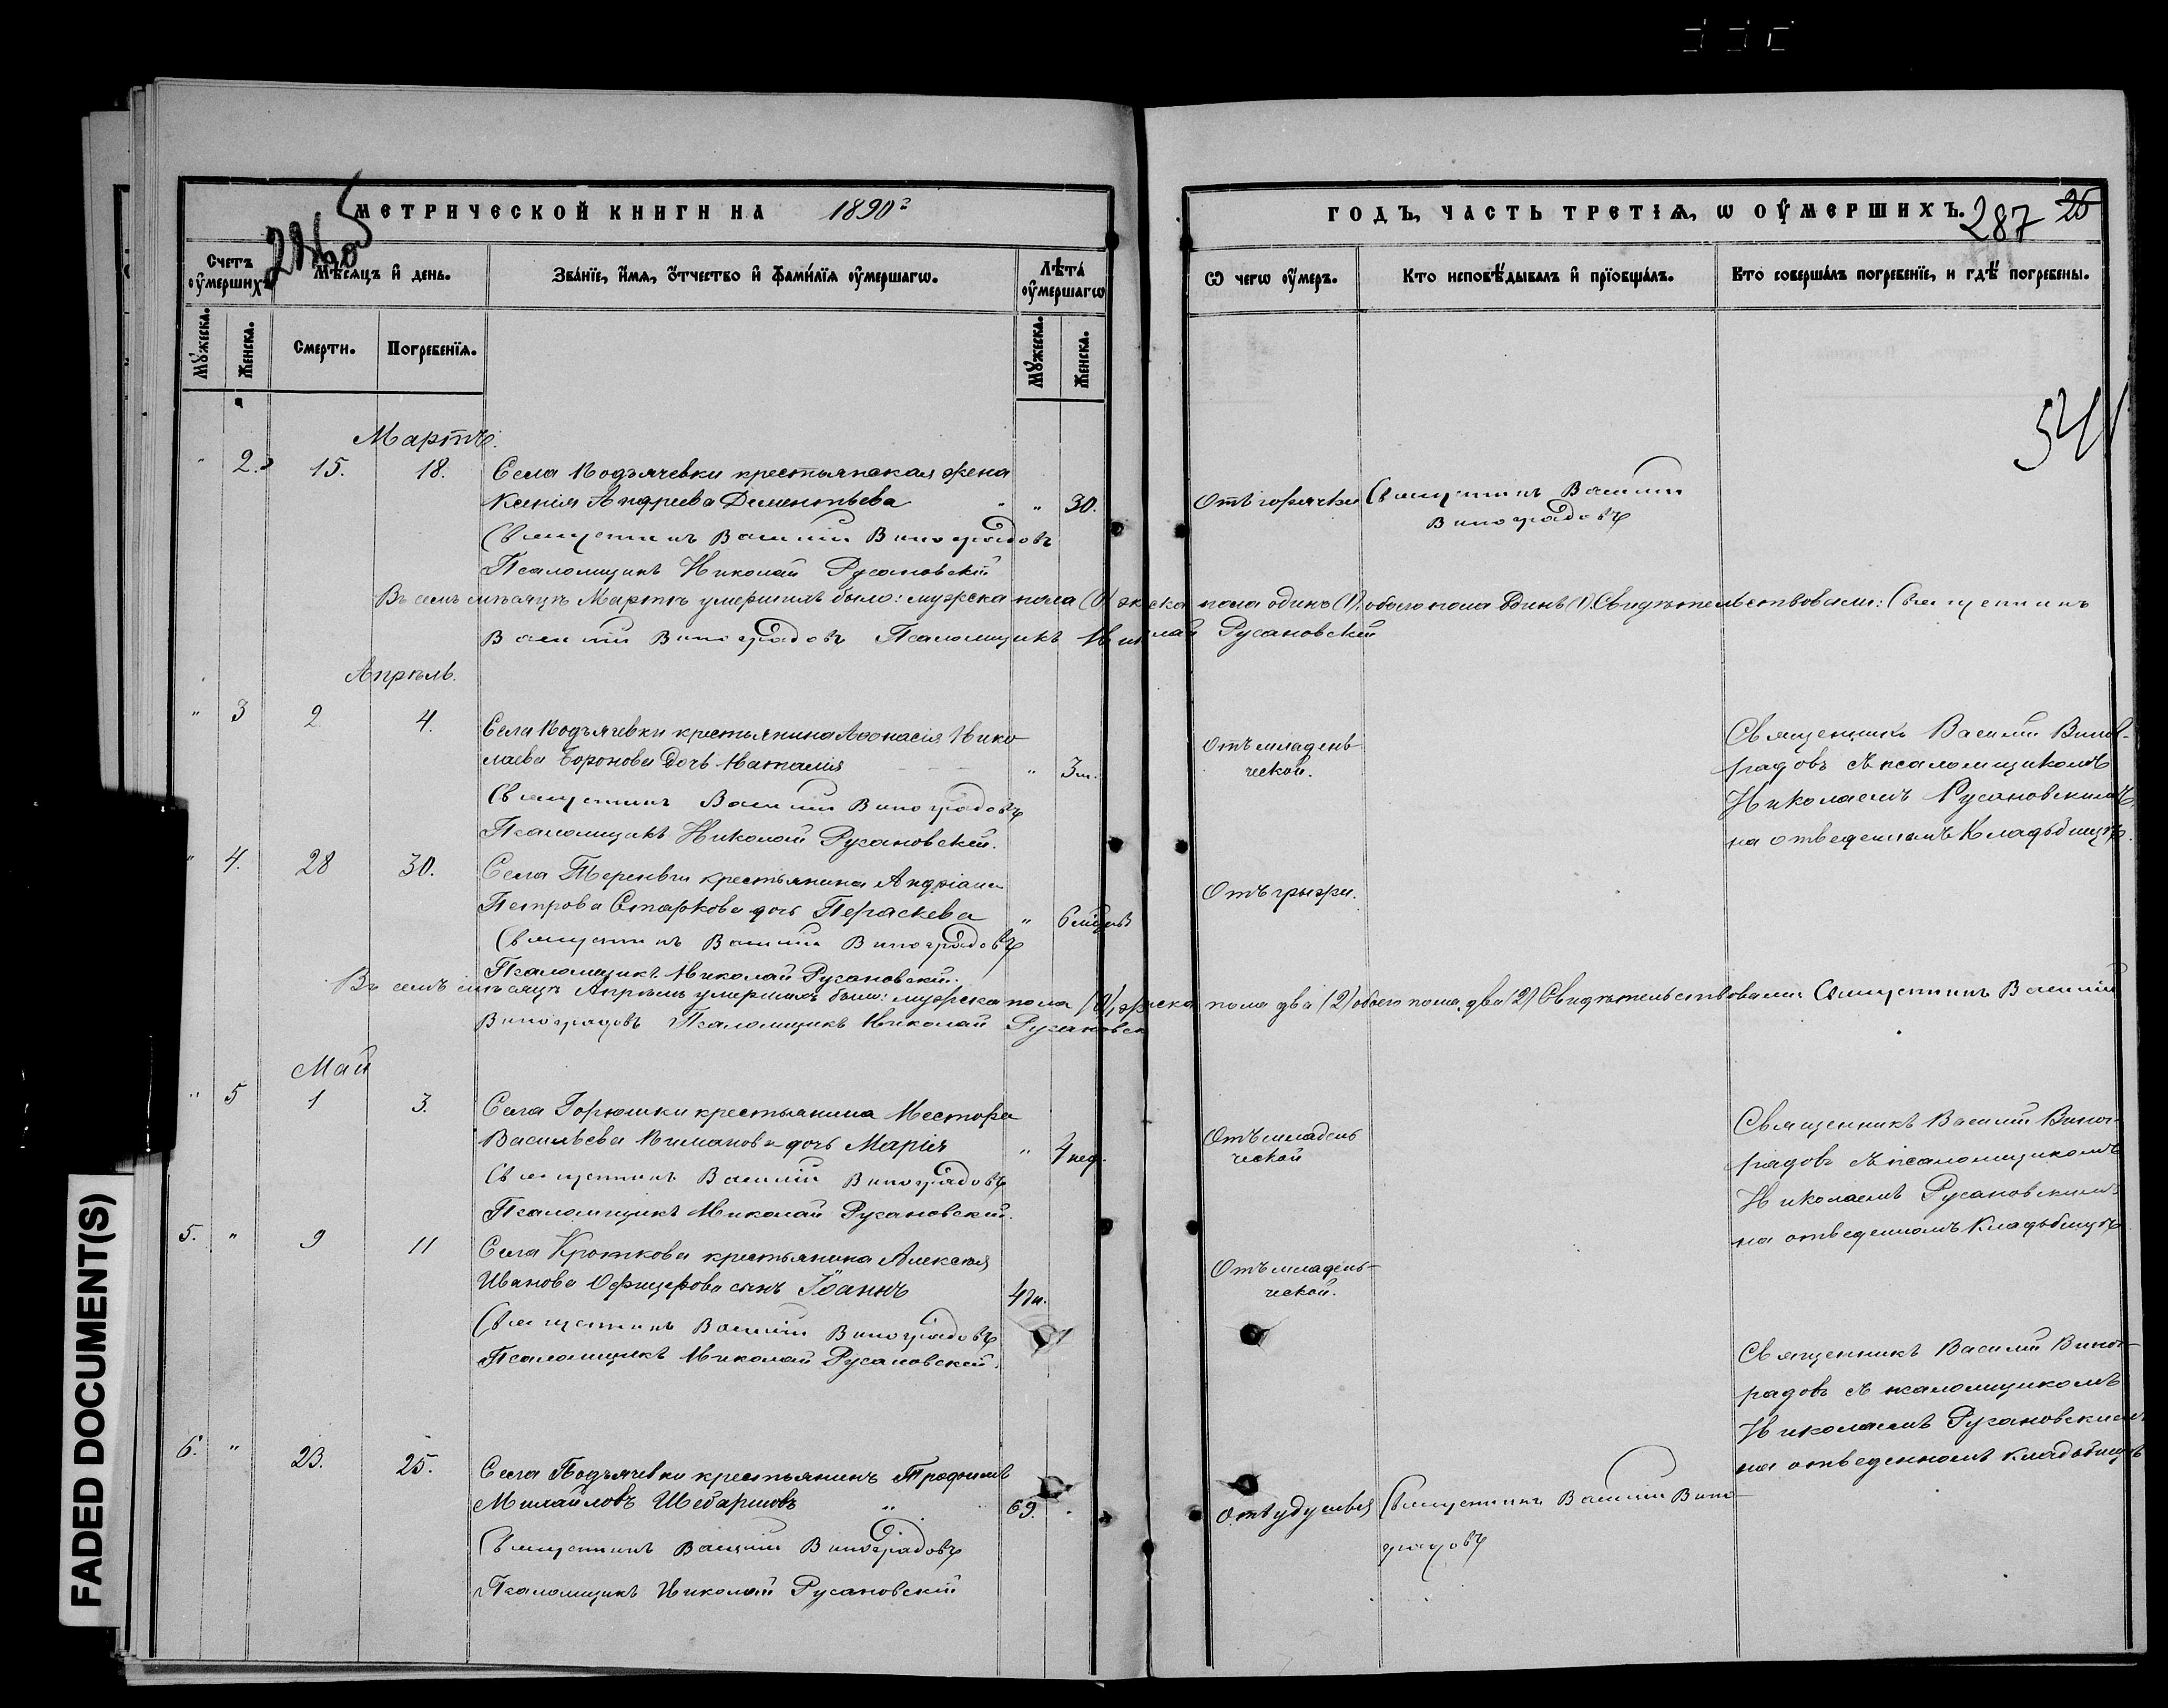 МЕТРИЧЕСКОЙ КНИГИ НА 1890 г
ГОДЪ, ЧАСТЬ ТРЕТІѦ, Ѡ ОУМЕРШИХЪ.
287 25
Счетъ оумершихъ
Мѣсяцъ и день.
Званіе, имя, отчество и фамилія оумершагѡ.
Лѣта оумершагѡ
Ѡ чегѡ оумеръ.
Кто исповѣдывалъ и пріобщалъ.
Кто совершалъ погребеніе, и гдѣ погребены.
Мужеска.
Женска.
Смерти.
Погребенія.
Мужеска.
Женска.
541
Мартъ.
" 2. 15. 18. Села Подъячевки крестьянская жена
Ксенія Андреева Дементьева " " 30. Отъ горячки Священникъ Василій
Виноградовъ
Священникъ Василій Виноградовъ
Псаломщикъ Николай Русановскій
Въ семъ мѣсяцѣ Мартѣ умершихъ было: мужска пола (0) женска пола одинъ (1) обоего пола одинъ (1). Свидѣтельствовали: Священникъ
Василій Виноградовъ Псаломщикъ Николай Русановскій
Апрѣль.
" 3 2 4. Села Подъячевки крестьянина Аѳонасія Нико
лаева Боронова дочь Наталія " 3 м. Отъ младень
ческой.
Священникъ Василій Виног-
радовъ съ псаломщикомъ
Николаемъ Русановскимъ
на отведенномъ кладбищѣ.
Священникъ Василій Виноградовъ
Псаломщикъ Николай Русановскій.
" 4. 28 30. Села Тереньги крестьянина Андріана
Петрова Старкова дочь Параскева " 6 мѣсяцевъ Отъ грыжи.
Священникъ Василій Виноградовъ
Псаломщикъ Николай Русановскій.
Въ семъ мѣсяцѣ Апрѣлѣ умершихъ было: мужска пола (0), женска пола два (2) обоего пола два (2) Свидѣтельствовали Священникъ Василій
Виноградовъ Псаломщикъ Николай Русановск
Май
" 5 1 3. Села Горюшки крестьянина Нестора
Васильева Киманова дочь Марія " 4 нед. Отъ младень
ческой
Священникъ Василій Виног-
радовъ съ псаломщикомъ
Николаемъ Русановскимъ
на отведенномъ кладбищѣ
Священникъ Василій Виноградовъ
Псаломщикъ Николай Русановскій.
5. " 9 11 Села Кроткова крестьянина Алексѣя
Иванова Офицерова сынъ Іоаннъ 4 дн. Отъ младень-
ческой.
Священникъ Василій Виноградовъ
Псаломщикъ Николай Русановскій.
Священникъ Василій Виног-
радовъ съ псаломщикомъ
Николаемъ Русановскимъ
на отведенномъ кладбищѣ
6. " 23. 25. Села Подъячевки крестьянинъ Трофимъ
Михайловъ Шебаршовъ " 69. " Отъ удушья Священникъ Василій Вино-
градовъ
Священникъ Василій Виноградовъ
Псаломщикъ Николай Русановскій
FADED DOCUMENT(S)